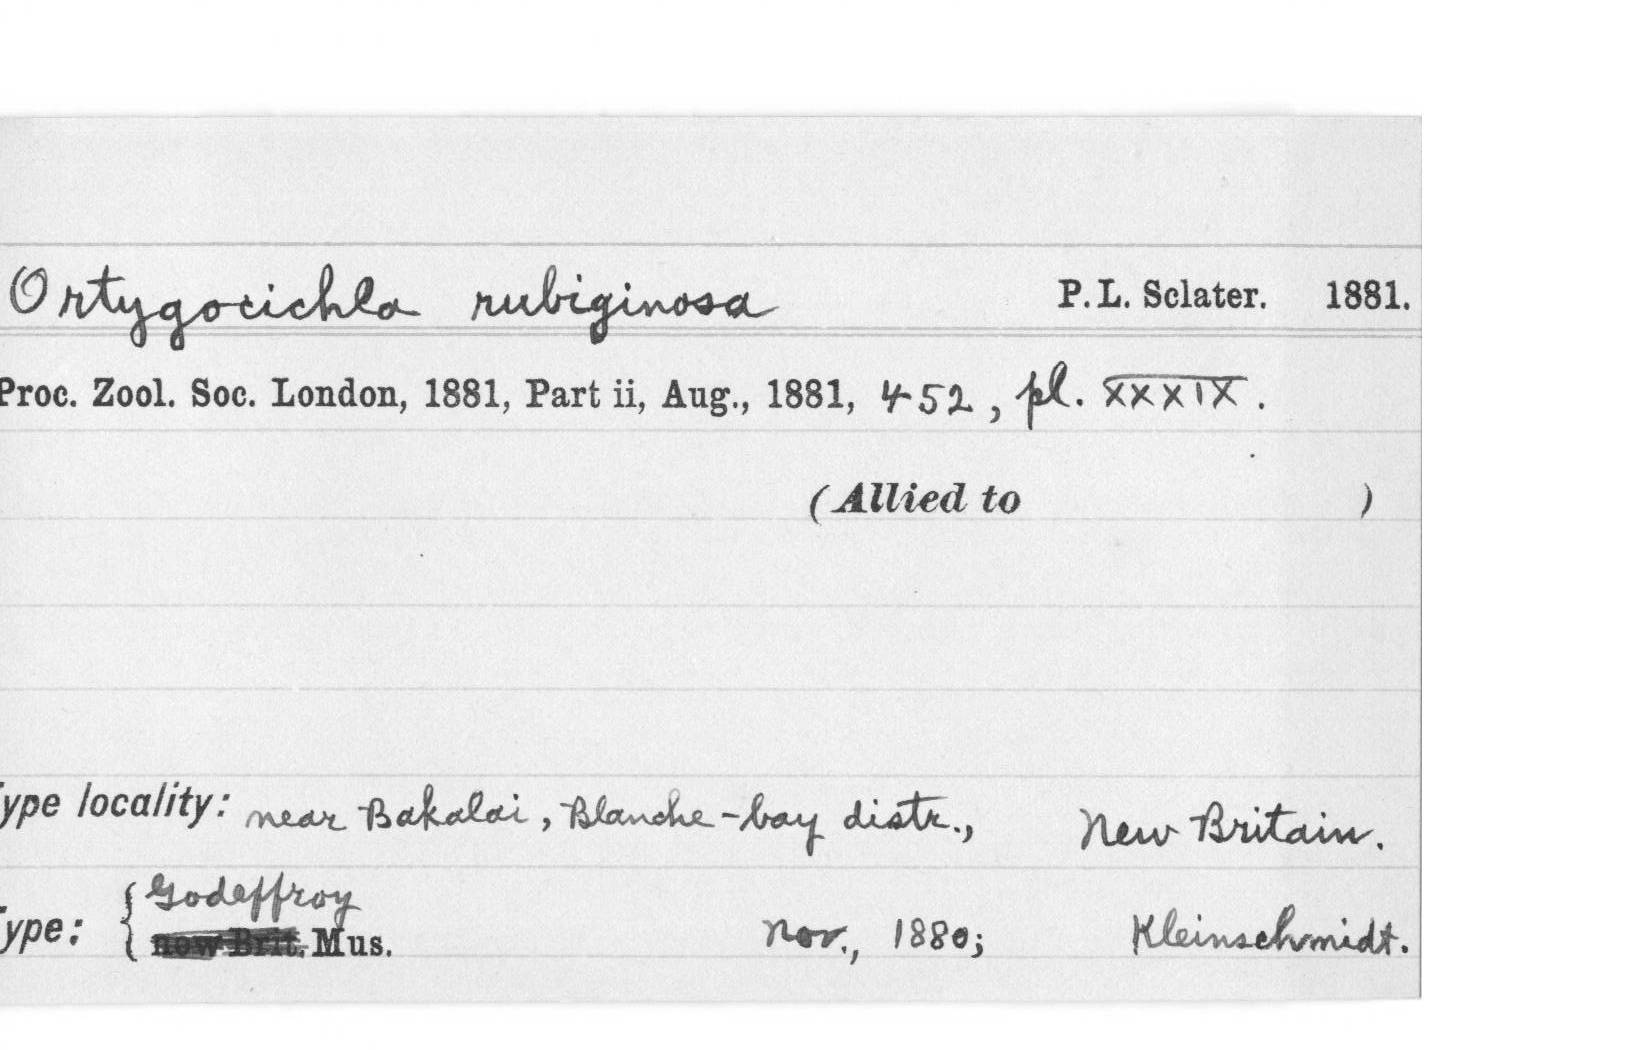 Ortygocichla rubiginosa P. L. Sclater. 1881.
Proc. Zool. Soc. London, 1881, Part ii, Aug., 1881, 452, pl. XXXIX.
(Allied to )
ype locality: near Bakalai, Blanche-bay distr., New Britain.
Godeffroy
ype: { now Brit. Mus. Nov., 1880; Kleinschmidt.